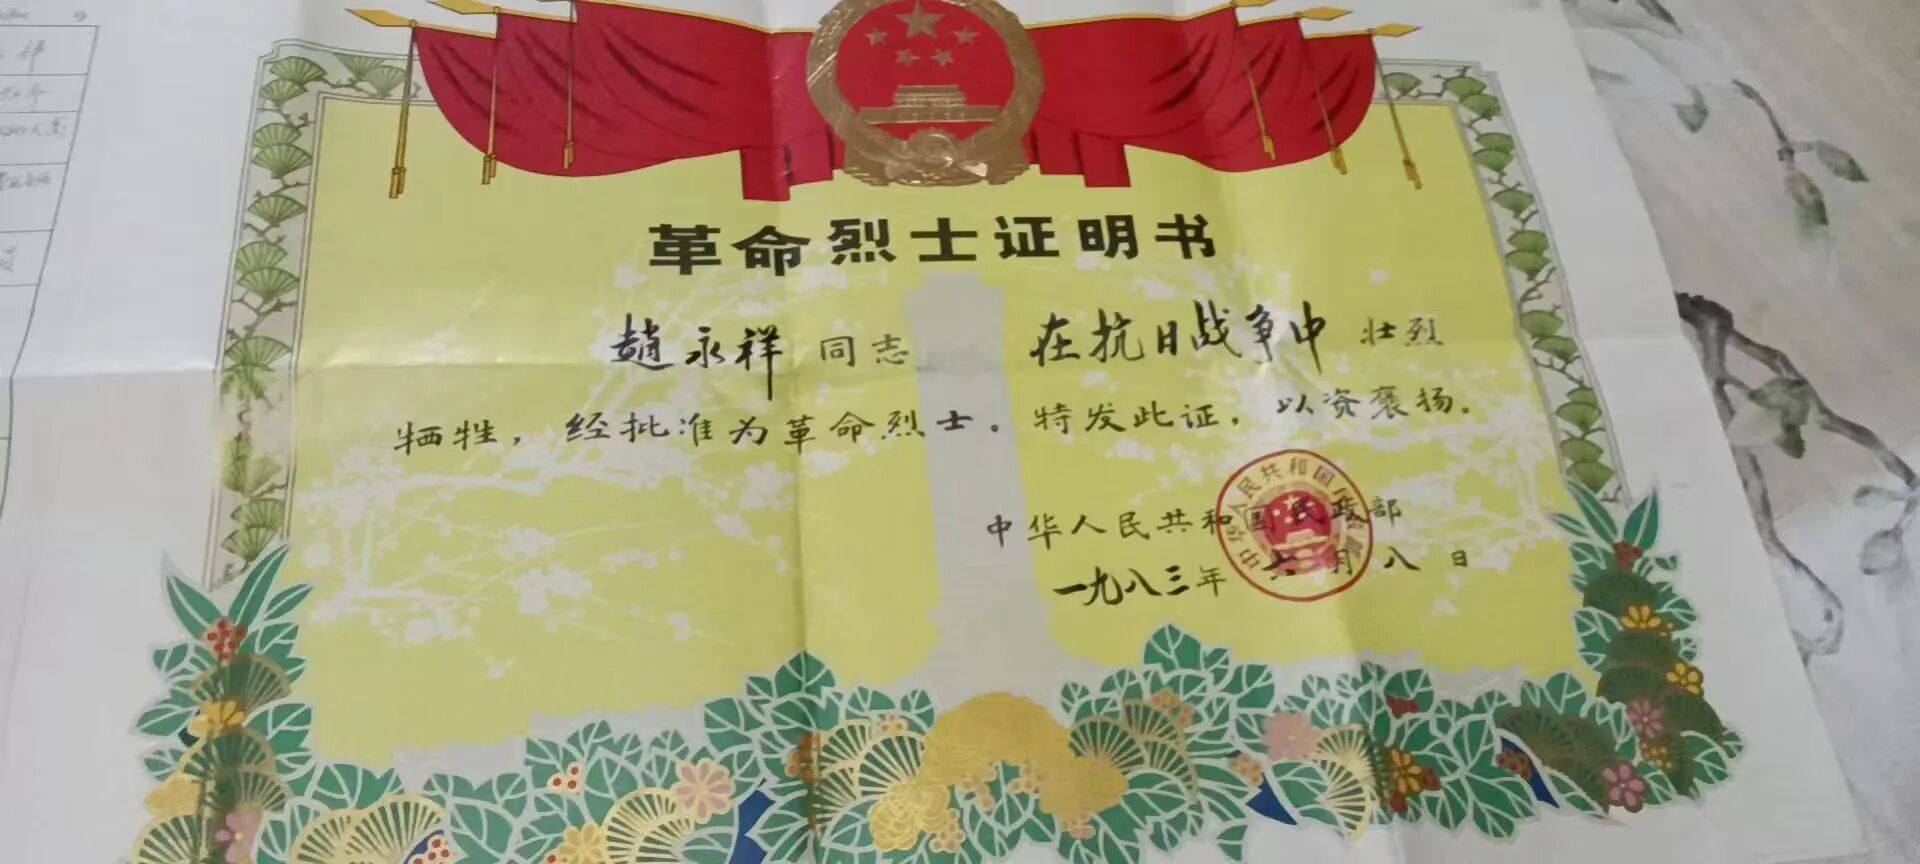 革命烈士证明书
趙永祥同志 在抗日战争中壮烈
牺牲，经批准为革命烈士。特发此证，以资褒扬。
中华人民共和国民政部
一九八三年六月八日